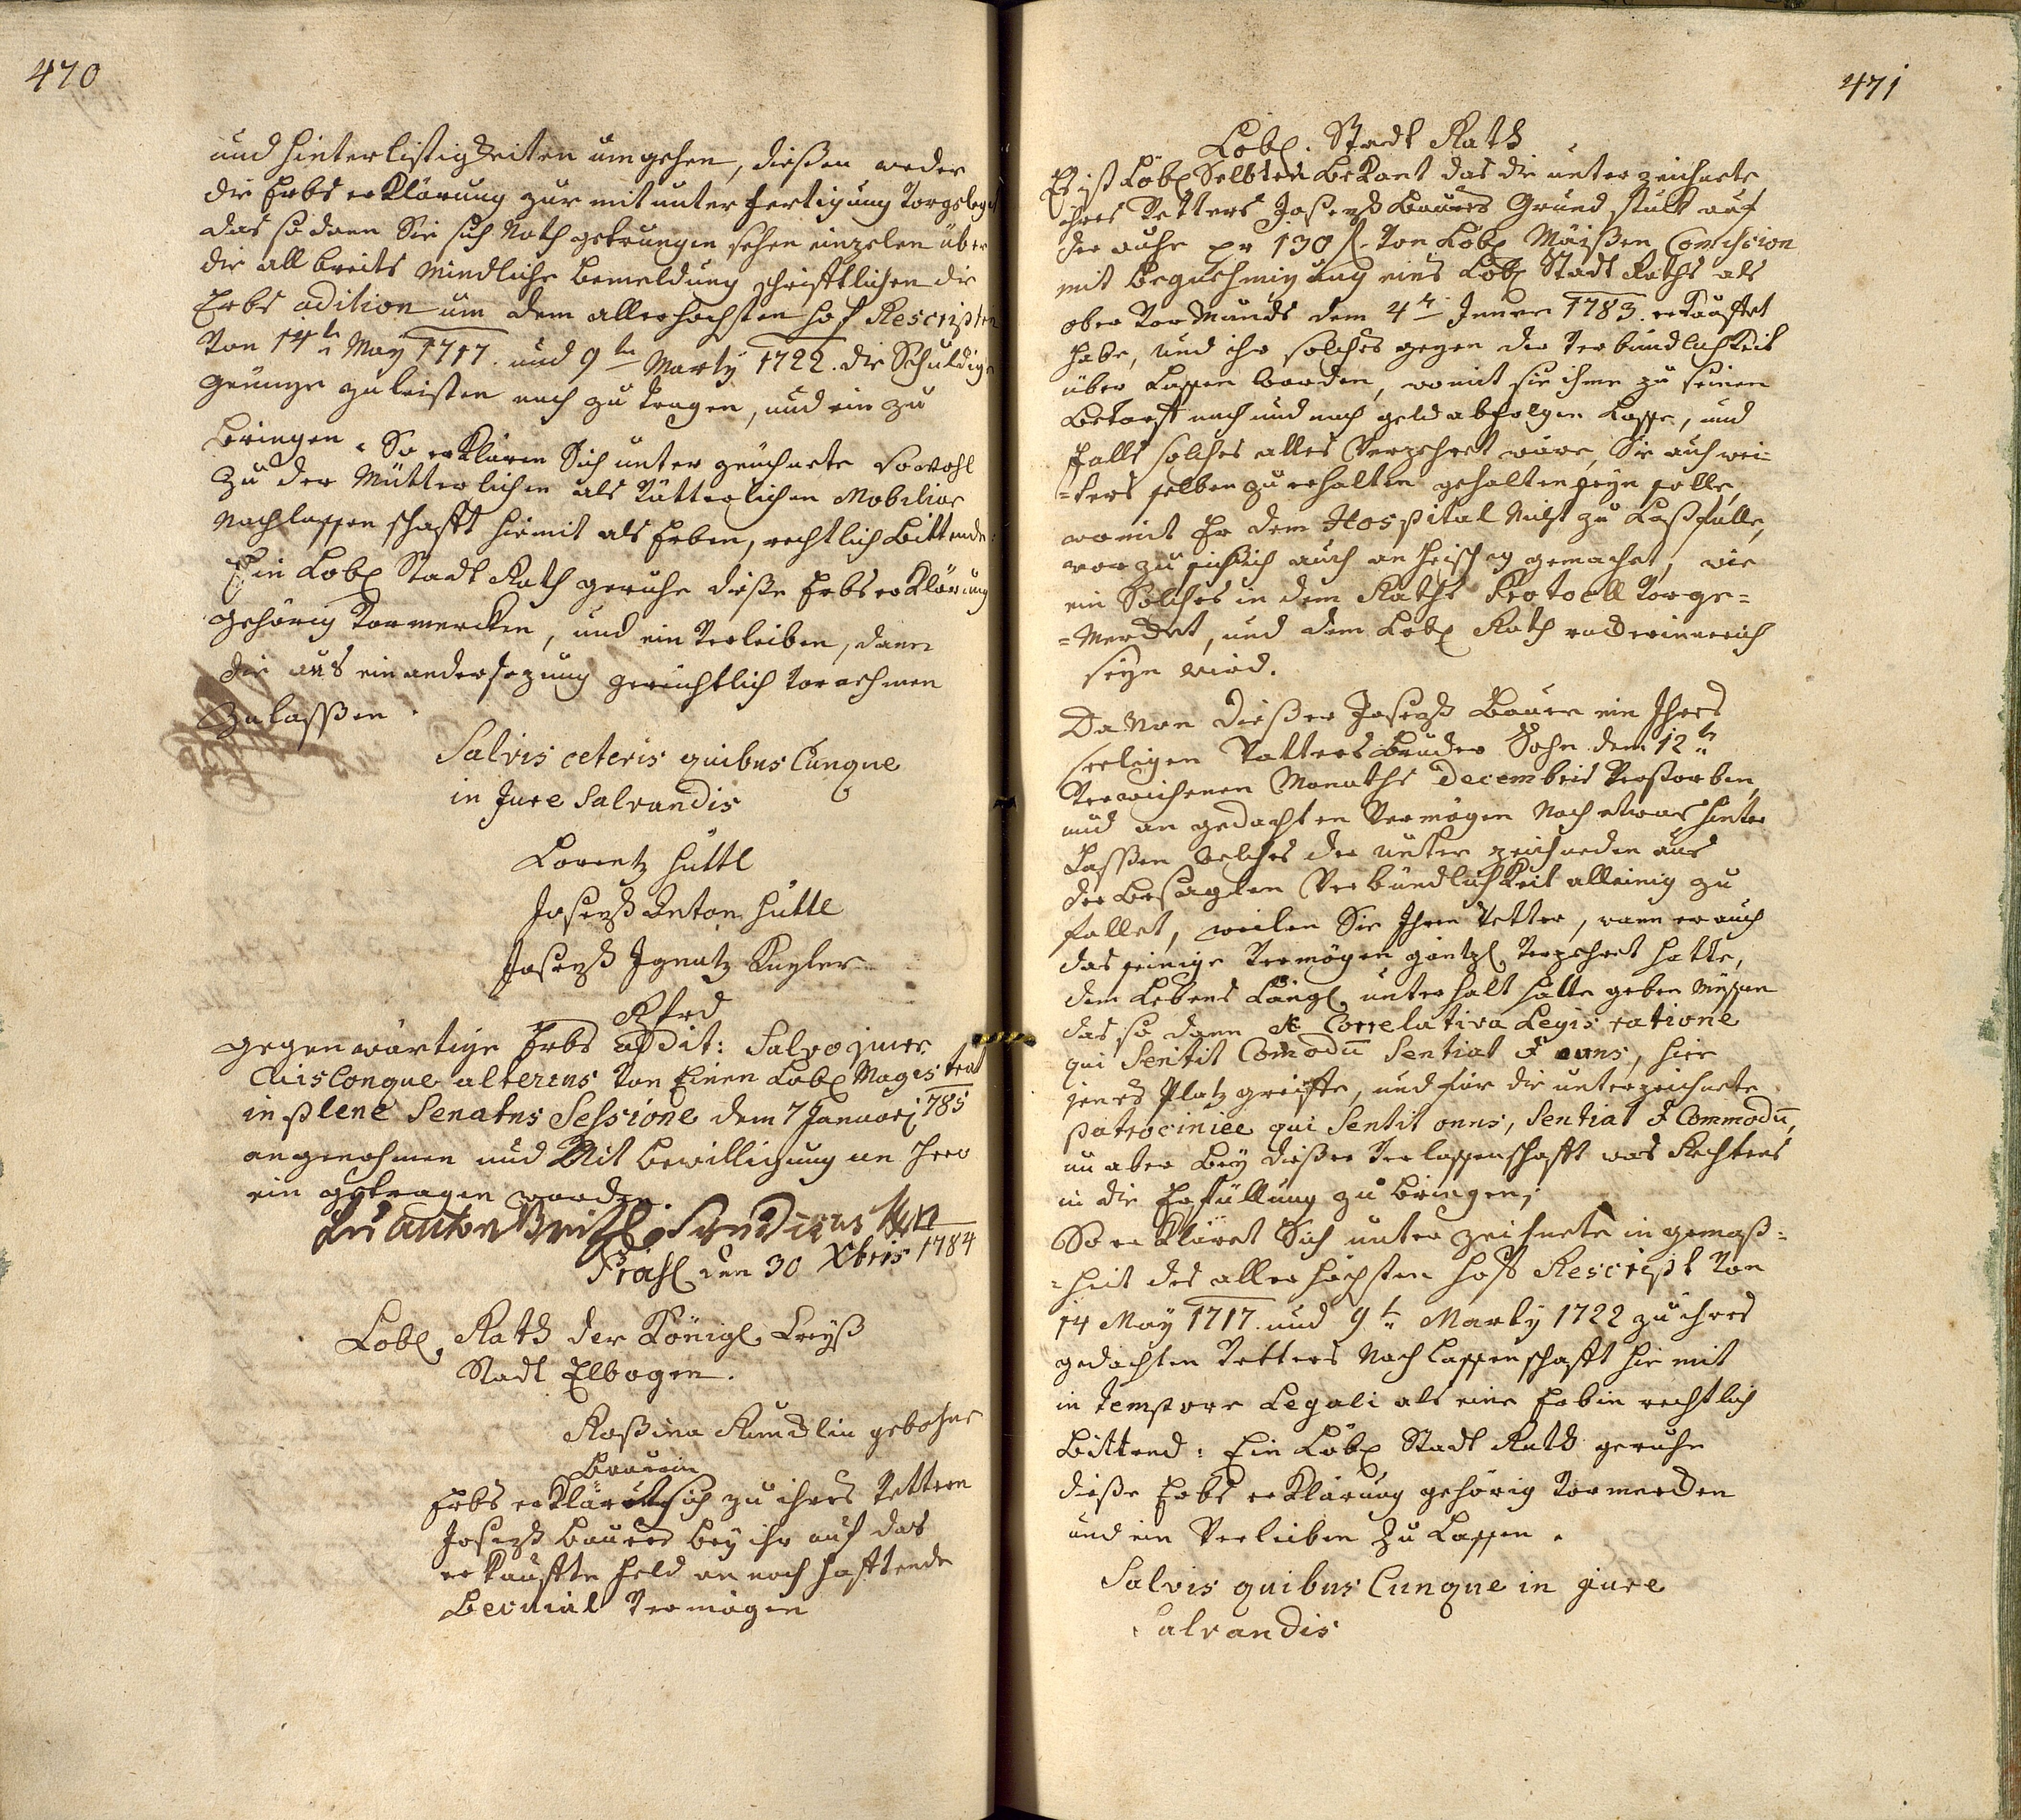 470
und hinterlistigkeiten umgehen, dießen weder
die Erbs erklärung zur mit unter fertigung vorgelegt
das so dann Sie sich Noth getrungen sehen einzelen über
die all bereits Mindliche bemeldung schrifftlichen die
Erbs adition um dem allerhöchsten hof Rescripten
von 14ten May 1717. und 9ten Marty 1722. die Schuldige
genüge zu leisten nach zu tragen, und ein zu
bringen. So erklären Sich unter zeichnete sowohl
zu der Mütterlichen als Vätterlichen Mobilior
Nachlassenschafft hiemit als Erben, rechtlich Bittende:
Ein Löbl Stadt Rath geruhe dieße Erbs erklärung
gehörig vormercken, und ein verleiben, dann
die aus einandersezung gerichtlich vornehmen
zulaßen.
Salvis ceteris quibus Cunque
in Jure Salvandis
Lorentz hüttl
Joseph Anton hüttl
Joseph Ignatz Kugler
gegenwärtige Erbs addit: Salvo jure
Cuisconque alterius von Einen Löbl Magistrat
in plene Senatus Sessione dem 7 Januarj 785
angenohmen und Mit bewilligung an hero
ein getragen worden.
Anton Syndicus
Präs den 30 Xbris 1784
Löbl. Rath der Königl. Creyß
Stadt Elbogen.
Roßina gebohrne
Bauerin
Erbs erklärt sich zu ihres Vettern
Joseph Bauers bey ihr auf das
erkauffte Feld an noch hafftende
Vermögen
471
Löbl. Stadt Rath
Es ist Löbl Selbten bekant das die unterzeichnete
ihres Vetters Joseph Bauers Grund stuck auf
der pr 130 f. von Löbl Comission
mit begnehmigung eines Löbl Stadt Raths als
ober Vormunds dem 4ten Jenner 1783. erkauffet
habe, und ihr solches gegen der verbindlichkeit
über Lassen worden, womit sie ihme zu seinen
bedarff nach und nach geld abfolgen Lasse, und
falls solches alles verzehret wäre, Sie auch wei-
-ters selben zu erhalten gehalten seyn solle,
womit Er dem Hospital Nicht zu Last falle,
worzu sie sich auch an heischig gemachet, wie
ein Solches in dem Raths Protocoll vorge=
=Merckt, und dem Löbl Rath erinnerlich
seyn wird.
Da Nun dießer Joseph Bauer ein Ihres
seeligen Vatters bruder Sohn dem 12ten
verwichenen Monaths Decembris verstorben,
und an gedachten Vermögen Noch etwas hinter
Lassen welches der unter zeichneden aus
der besagten Verbündlichkeit alleinig zu
fallet, weilen Sie Ihren Vetter, wann er auch
das seinige Vermögen gäntzl. verzehret hatte,
dem Lebens Längl. unterhalt hätte geben müssen
das so dann Correlativa Legis ratione
qui Sentit Comodu Sentiat & onus, hier
jenes Platz greiffe, und für die unterzeichnete
patrociniee qui Sentit onus, Sentiat & Commodu,
nu aber bey dießer verlassenschafft was Rechtens
in die Erfüllung zu bringen;
So erkläret Sich unter zeichnete in gemäß=
=heit des aller höchsten hoff Rescript von
14 May 1717. und 9ten Marty 1722 zu ihres
gedachten Vetters Nach Lassenschafft hie mit
in tempore Legali als eine Erbin rechtlich
Bittend: Ein Löbl Stadt Rath geruhe
dieße Erbs erklärung gehörig vormercken
und ein Verleiben zu Lassen.
Salvis quibus Cunque in jure
Salvandis